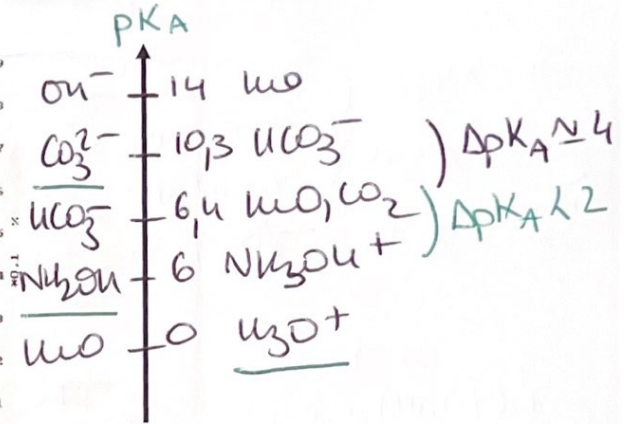 pKA
OH⁻ 14 H₂O
CO₃²⁻ 10,3 HCO₃⁻ ) ΔpKA ≃ 4
HCO₃⁻ 6,4 H₂O, CO₂ ) ΔpKA < 2
NH₂OH 6 NH₃OH⁺
H₂O 0 H₃O⁺